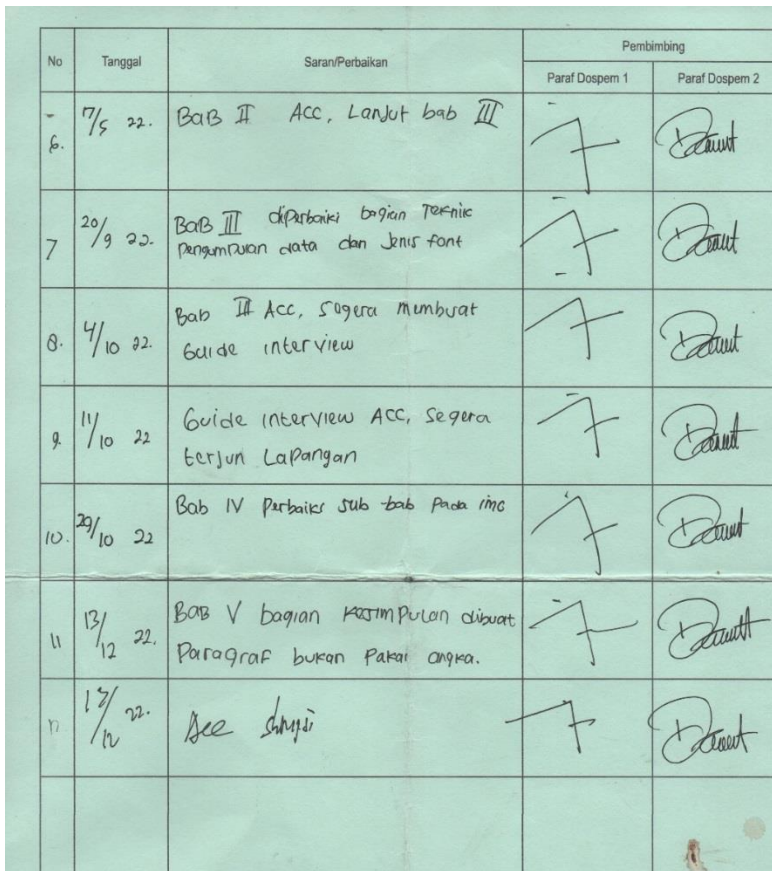 No Tanggal Saran/Perbaikan Pembimbing
Paraf Dospem 1 Paraf Dospem 2
6. 7/5 22. BaB II ACC, Lanjut bab III
7 20/9 22. BaB III diperbaiki bagian Teknik
Pengumpulan data dan Jenis font
8. 4/10 22. Bab III Acc, Segera membuat
Guide interview
9. 11/10 22 Guide interview ACC, Segera
terjun Lapangan
10. 29/10 22 Bab IV Perbaiki sub-bab Pada imc
11 13/12 22. BaB V bagian Kesimpulan dibuat
Paragraf bukan Pakai angka.
/12 22. Acc skripsi